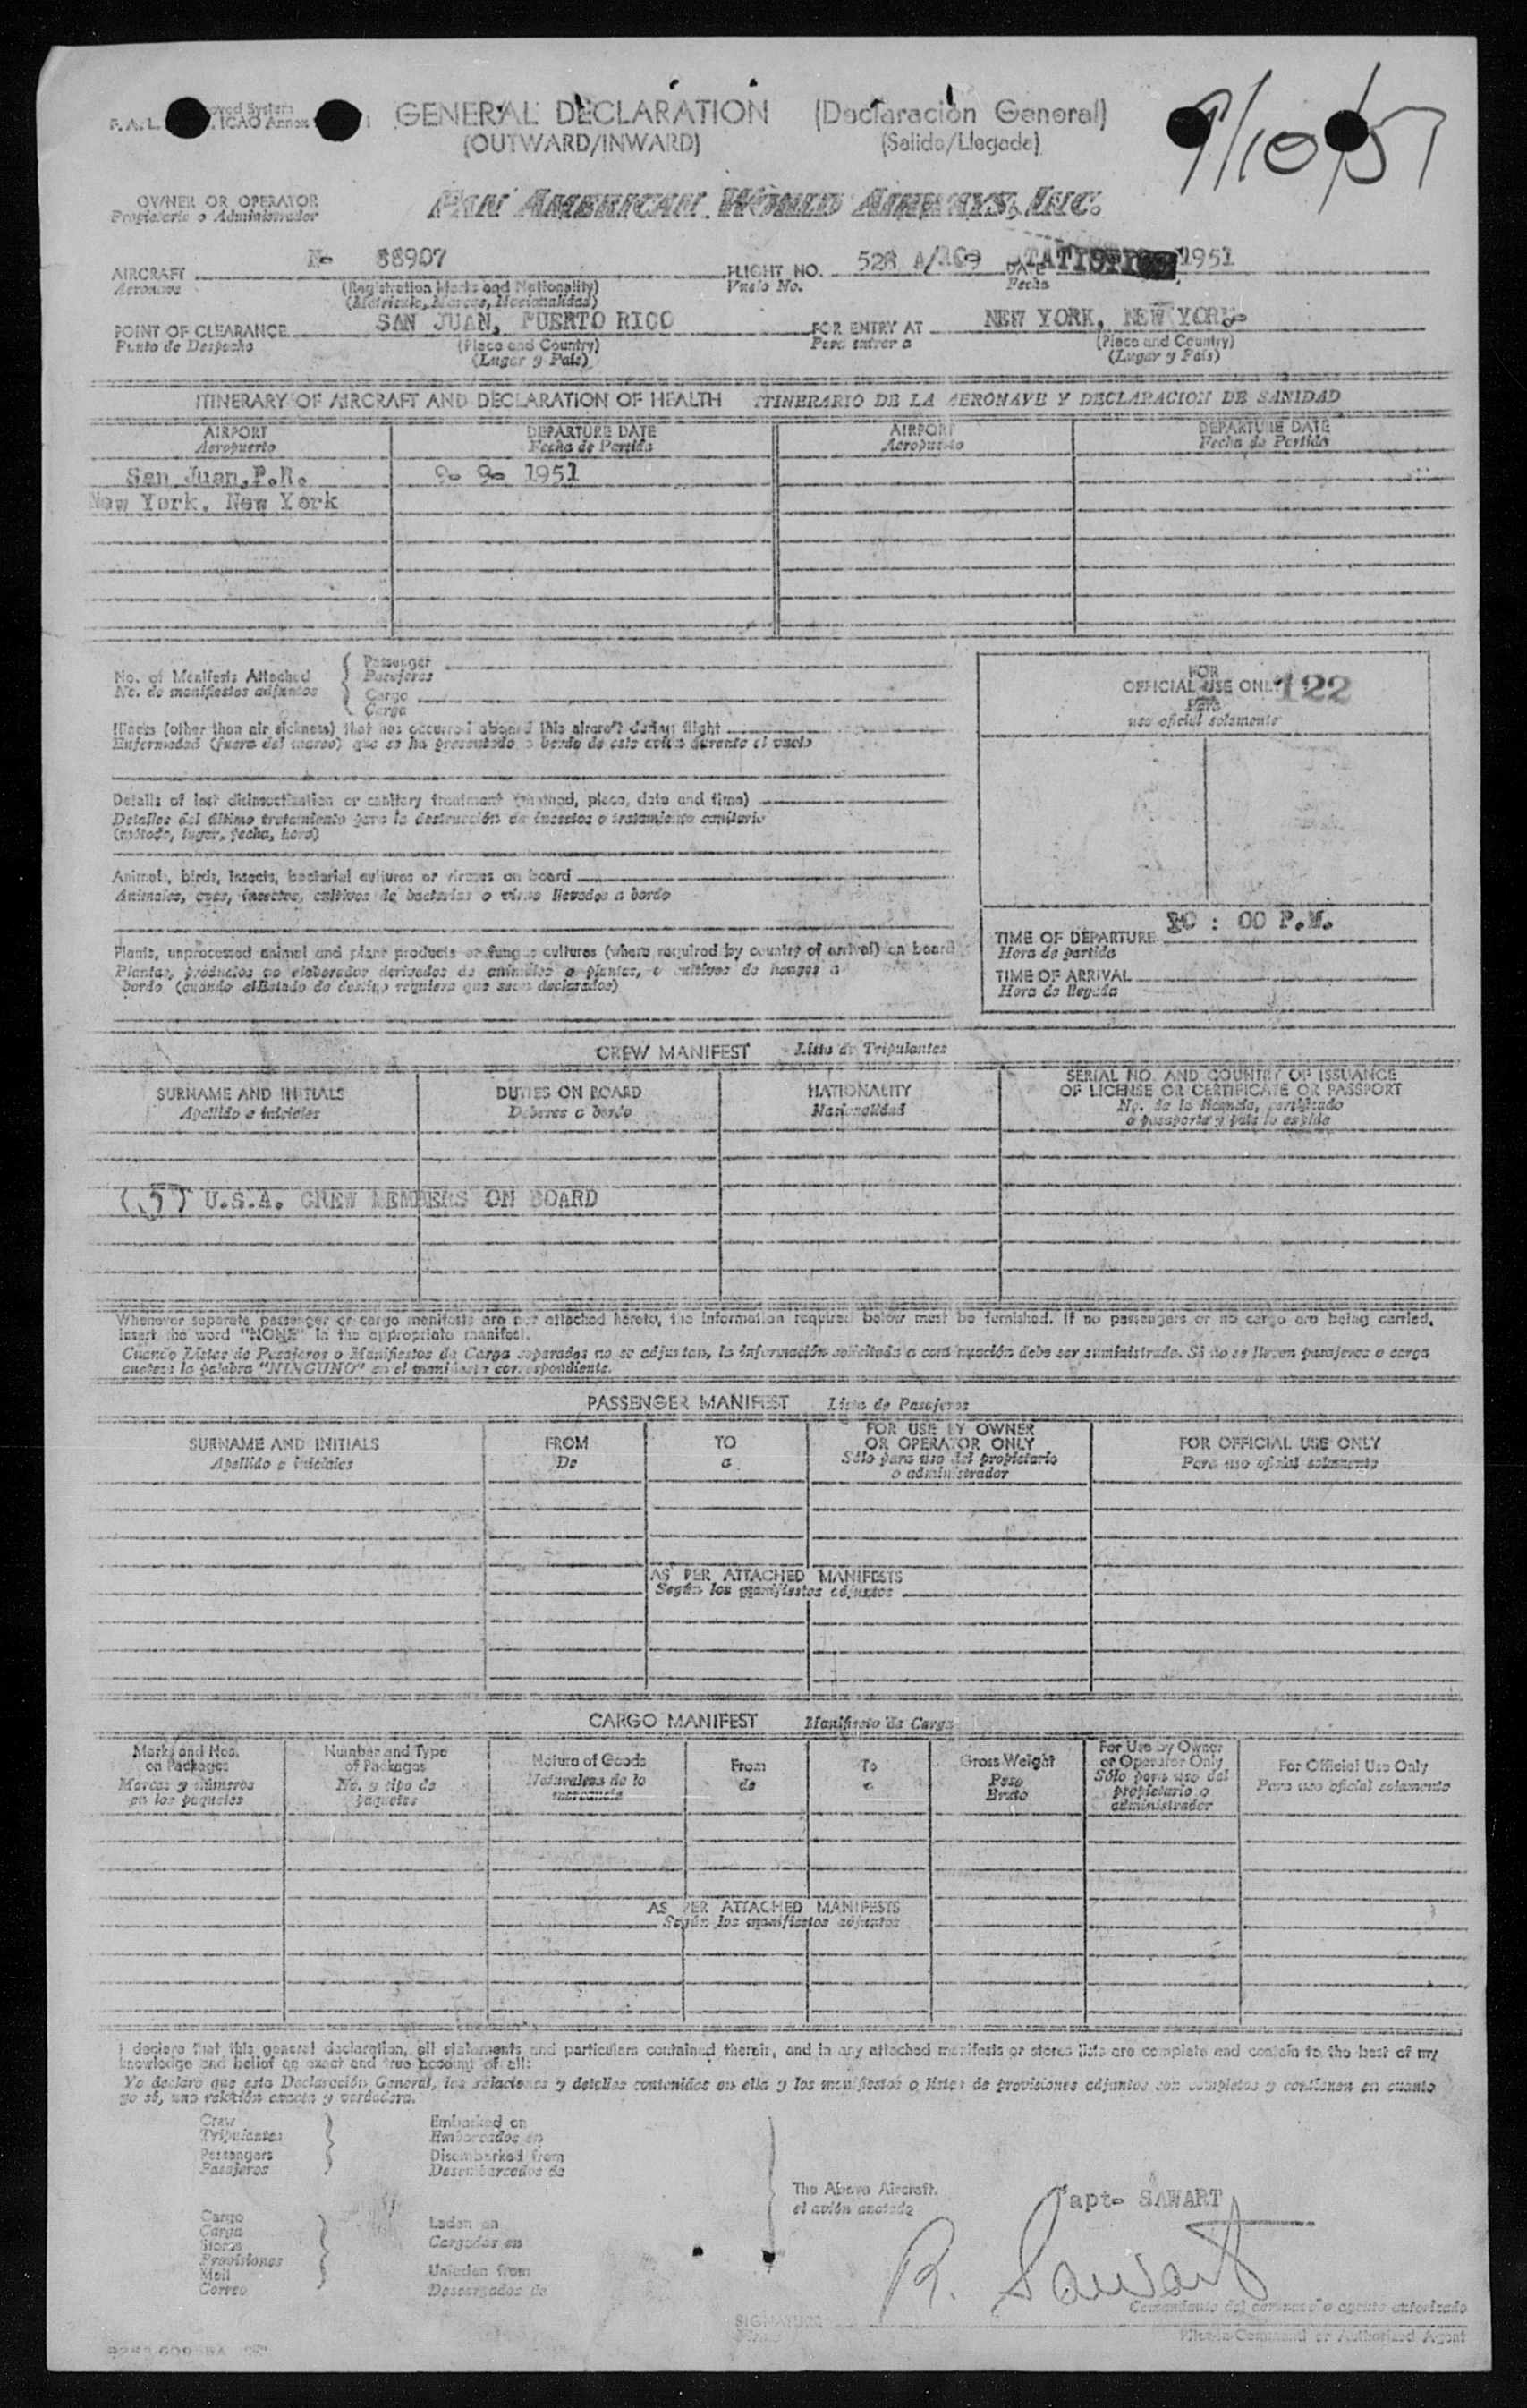 GENERAL DECLARATION (Declaración General)
(OUTWARD/INWARD) (Salida/Llegada)
9/10/51
F.A.L. ICAO Annex
OWNER OR OPERATOR
Propietario o Administrador
PAN AMERICAN WORLD AIRWAYS, INC.
AIRCRAFT N- 88907 FLIGHT NO. 528 DATE 1951
Aeronave (Registration Marks and Nationality) Vuelo No. Fecha
(Matricula, Marcas, Nacionalidas)
POINT OF CLEARANCE SAN JUAN, PUERTO RICO FOR ENTRY AT NEW YORK, NEW YORK-
Punto de Despacho (Place and Country) Para entrar a (Place and Country)
(Lugar y País) (Lugar y País)
ITINERARY OF AIRCRAFT AND DECLARATION OF HEALTH ITINERARIO DE LA AERONAVE Y DECLARACION DE SANIDAD
AIRPORT DEPARTURE DATE AIRPORT DEPARTURE DATE
Aeropuerto Fecha de Partida Aeropuerto Fecha de Partida
San Juan, P.R. 9- 9- 1951
New York, New York
No. of Manifests Attached Passenger
No. de manifiestos adjuntos Pasajeros
Cargo
Carga
FOR
OFFICIAL USE ONLY 122
Para
uso oficial solamente
Illness (other than air sickness) that has occurred aboard this aircraft during flight
Enfermedad (fuera del mareo) que se ha presentado a bordo de este avión durante el vuelo
Details of last disinsectization or sanitary treatment (method, place, date and time)
Detalles del último tratamiento para la destrucción de insectos o tratamiento sanitario
(método, lugar, fecha, hora)
Animals, birds, insects, bacterial cultures or viruses on board
Animales, aves, insectos, cultivos de bacterias o virus llevados a bordo
Plants, unprocessed animal and plant products or fungus cultures (where required by country of arrival) on board
Plantas, productos no elaborados derivados de animales o plantas, o cultivos de hongos a
bordo (cuando el Estado de destino requiera que sean declarados)
TIME OF DEPARTURE 10 : 00 P.M.
Hora de partida
TIME OF ARRIVAL
Hora de llegada
CREW MANIFEST Lista de Tripulantes
SURNAME AND INITIALS DUTIES ON BOARD NATIONALITY SERIAL NO. AND COUNTRY OF ISSUANCE
OF LICENSE OR CERTIFICATE OR PASSPORT
Apellido e iniciales Deberes a bordo Nacionalidad No. de la licencia, certificado
o pasaporte y país lo expide
(5) U.S.A. CREW MEMBERS ON BOARD
Whenever separate passenger or cargo manifests are not attached hereto, the information required below must be furnished. If no passengers or no cargo are being carried,
insert the word "NONE" in the appropriate manifest.
Cuando Listas de Pasajeros o Manifiestos de Carga separadas no se adjuntan, la información solicitada a continuación debe ser suministrada. Si no se llevan pasajeros o carga
anótese la palabra "NINGUNO" en el manifiesto correspondiente.
PASSENGER MANIFEST Lista de Pasajeros
SURNAME AND INITIALS FROM TO FOR USE BY OWNER
OR OPERATOR ONLY FOR OFFICIAL USE ONLY
Apellido e iniciales De a Sólo para uso del propietario
o administrador Para uso oficial solamente
AS PER ATTACHED MANIFESTS
Según los manifiestos adjuntos
CARGO MANIFEST Manifiesto de Carga
Marks and Nos.
on Packages
Marcas y números
en los paquetes
Number and Type
of Packages
No. y tipo de
paquetes
Nature of Goods
Naturaleza de la
mercancía
From
de
To
a
Gross Weight
Peso
Bruto
For Use by Owner
or Operator Only
Sólo para uso del
propietario o
administrador
For Official Use Only
Para uso oficial solamente
AS PER ATTACHED MANIFESTS
Según los manifiestos adjuntos
I declare that this general declaration, all statements and particulars contained therein, and in any attached manifests or stores lists are complete and contain to the best of my
knowledge and belief an exact and true account of all:
Yo declaro que esta Declaración General, las relaciones y detalles contenidos en ella y los manifiestos o listas de provisiones adjuntos son completos y contienen en cuanto
yo sé, una relación exacta y verdadera.
Crew Embarked on
Tripulantes Embarcados en
Passengers Disembarked from
Pasajeros Desembarcados de
The Above Aircraft.
el avión anotado
Capt- SAWART
Cargo Laden on
Carga Cargados en
Stores
Provisiones
Mail Unladen from
Correo Descargados de
R. Sawart
SIGNATURE
Comandante del aeronave o agente autorizado
Pilot-in-Command or Authorized Agent